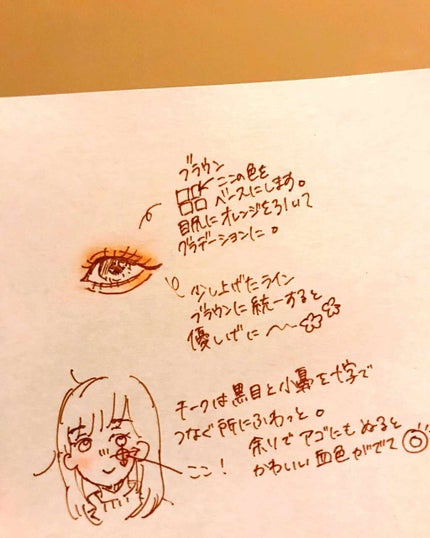 ブラウン
ここの色を
ベースにします。
目尻にオレンジを引いて
グラデーションに。
少し上げたライン
ブラウンに統一すると
優しげに〜〜
チークは黒目と小鼻を十字で
つなぐ所にふわっと。
余りでアゴにもぬると
かわいい血色がでて◎
ここ!